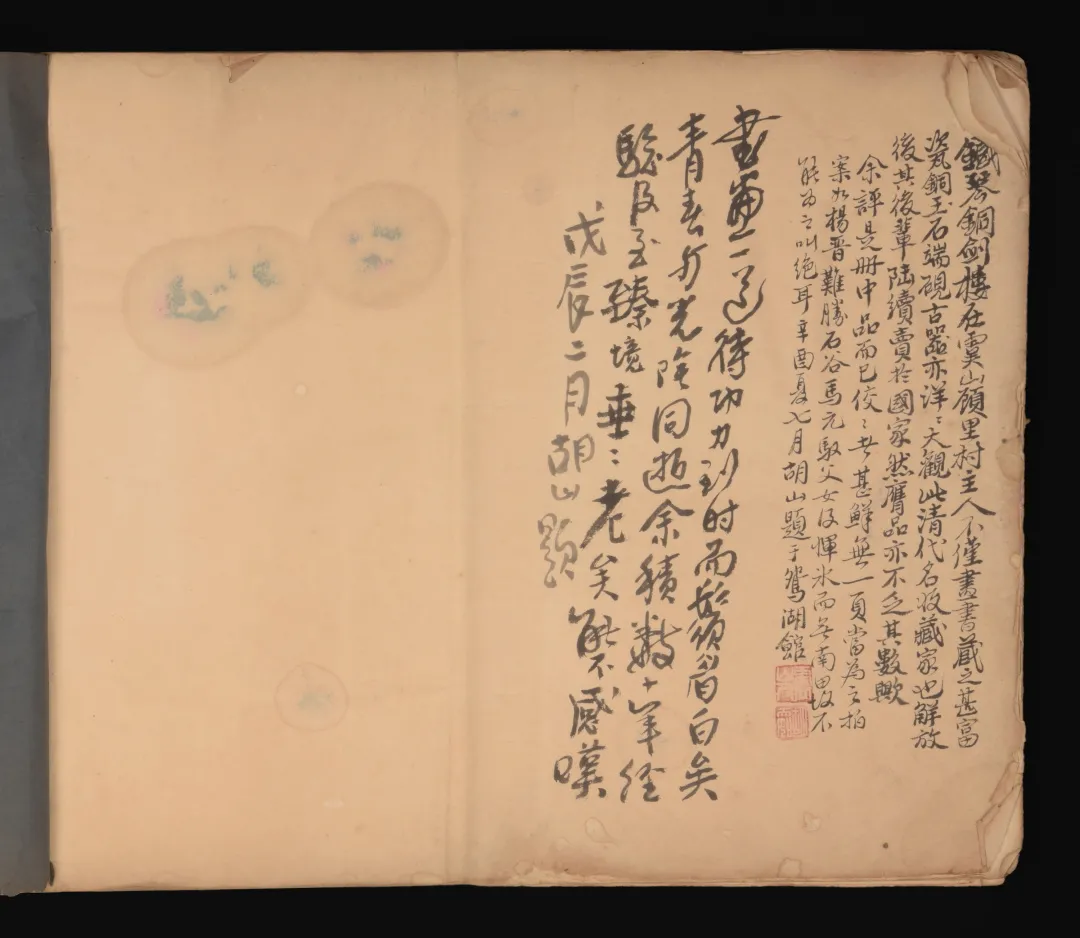 鐵琴銅劍樓在虞山顧里村主人不僅畫書藏之甚富
瓷銅玉石端硯古器亦洋〻大觀此清代名收藏家也解放
後其後輩陸續賣於國家然贋品亦不乏其數歟
余評是册中品而已佼〻者甚鮮無一頁當為之拍
案如楊晋難勝石谷馬元馭父女及惲冰而無南田故不
能為之叫絶耳辛酉夏七月胡山題于鴛湖館
書畫一道待功力到時而鬚眉白矣
青春与光陰同逝余積數十年經
驗及至臻境垂〻老矣能不感嘆
戊辰二月胡山題